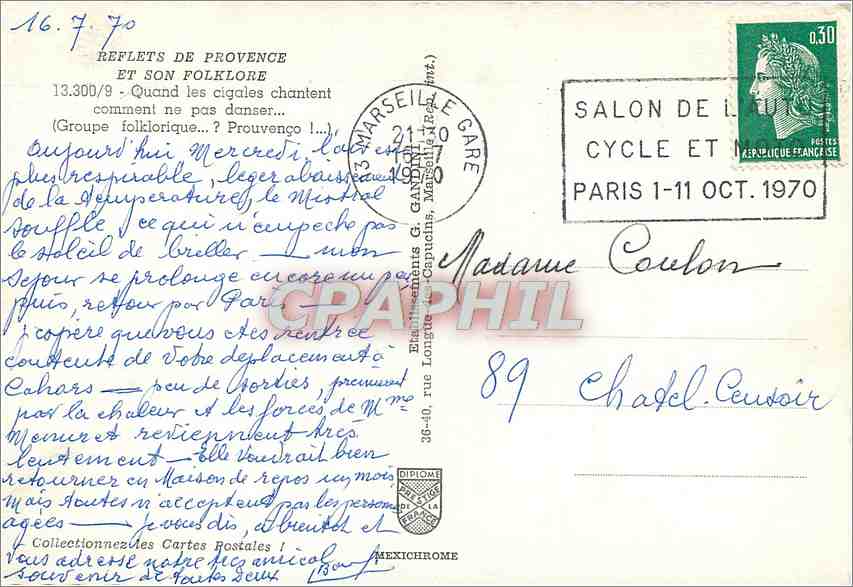 16.7.70
REFLETS DE PROVENCE
ET SON FOLKLORE
13.300/9 - Quand les cigales chantent
comment ne pas danser...
(Groupe folklorique...? Prouvenço !...)
Aujourd'hui Mercredi, l'air est
plus respirable, léger abaissement
de la température, le Mistral
souffle, ce qui n'empeche pas
le soleil de briller — mon
sejour se prolonge encore un peu
puis, retour par Paris
j'espère que vous etes rentrée
contente de votre deplacement à
Cahors — peu de sorties,
par la chaleur et les forces de Mme
reviennent très
lentement — Elle voudrait bien
retourner en Maison de repos un mois
mais toutes n'acceptent pas les personnes
agées — je vous dis, a bientot et
Collectionnez les Cartes Postales !
vous adresse notre tres amical
souvenir de toutes deux
Etablissements G. GANDINI
36-40, rue Longue-des-Capucins, Marseille (Rep. int.)
DIPLOME
PRESTIGE
DE LA
FRANCE
MEXICHROME
13 MARSEILLE GARE
21-30
16-7
1970
SALON DE L'AUTO
CYCLE ET MOTO
PARIS 1-11 OCT. 1970
0,30
POSTES
REPUBLIQUE FRANÇAISE
Madame Coulon
89 Chatel-Censoir
CPAPHIL